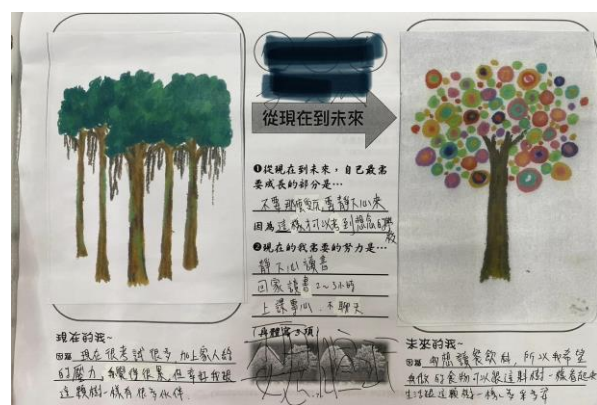 從現在到未來
❶從現在到未來，自己最需
要成長的部分是…
因為這樣才可以考到想念的學校
❷現在的我需要的努力是…
靜下心讀書
回家讀書2~3小時
上課專心，不聊天
(具體寫3項)
現在的我~
因為現在很考試很多加上家人給
的壓力，有覺得很累，但幸好我跟
這顆樹一樣有很多伙伴。
未來的我~
因為我想讀餐飲科，所以我希望
我做的食物可以跟這顆樹一樣看起來